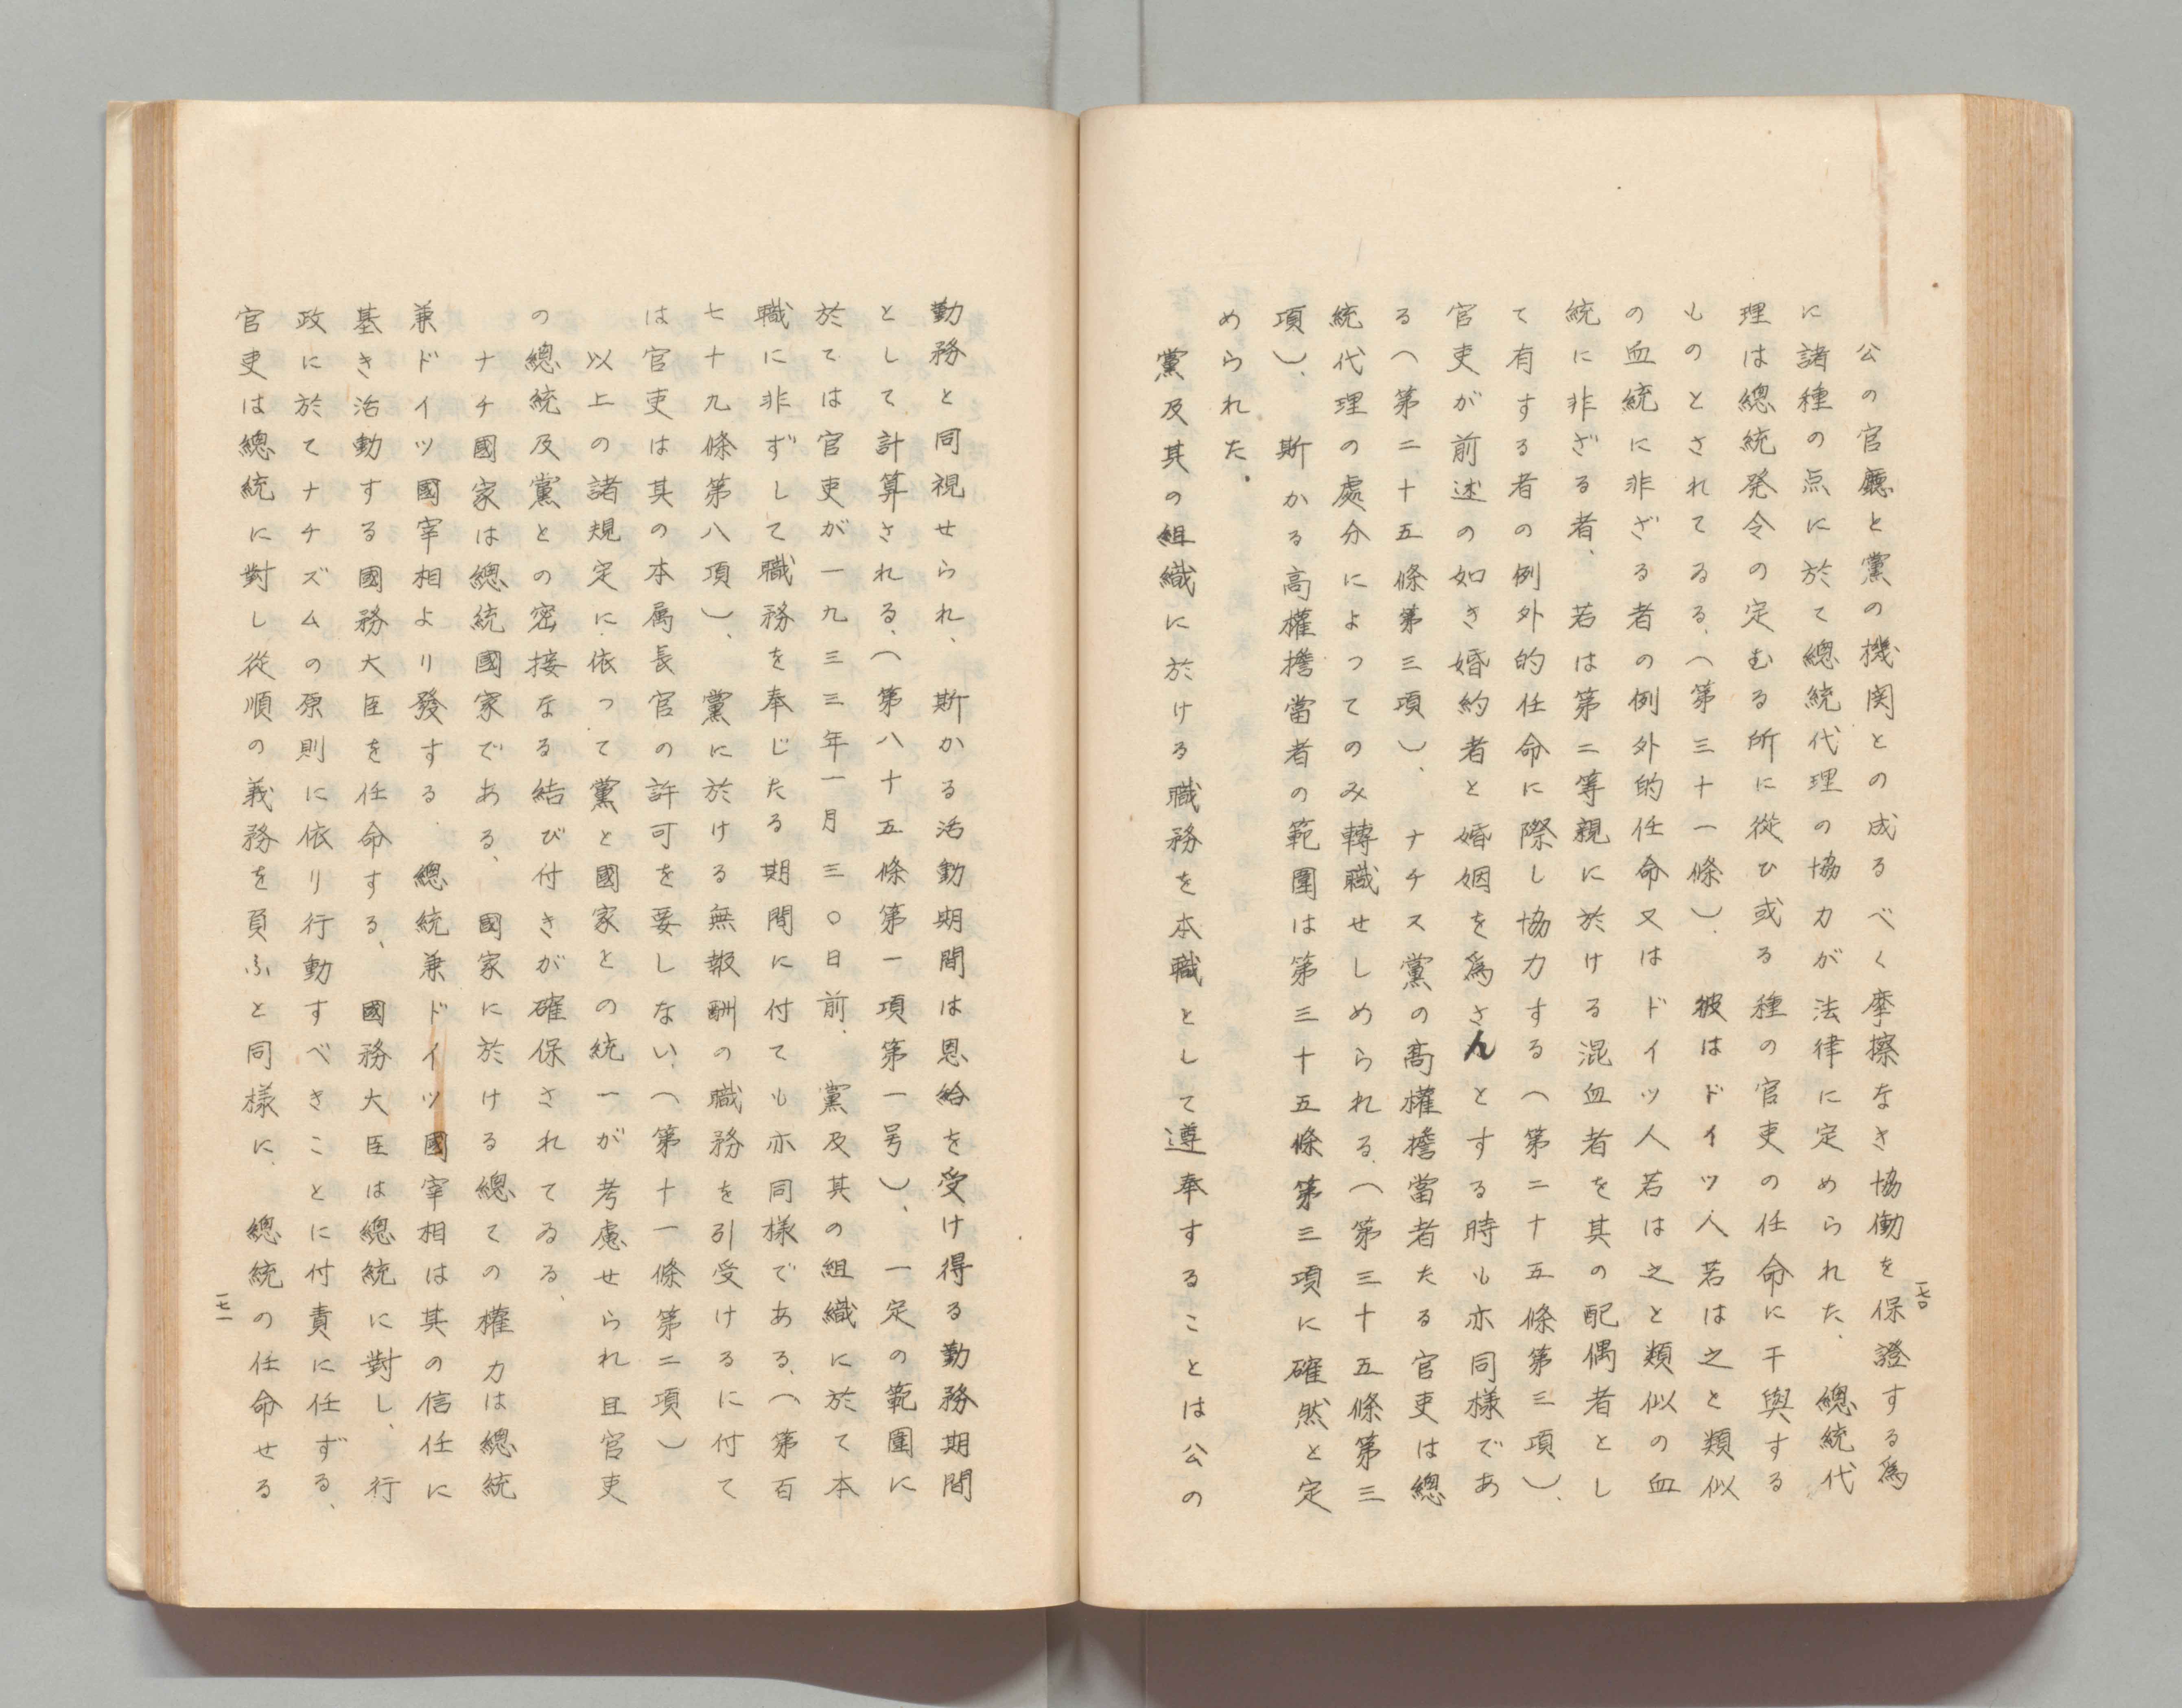 公の官廳と黨の機関との成るべく摩擦なき協働を保證する爲
に諸種の点に於て總統代理の協力が法律に定められた、總統代
理は總統発令の定むる所に從ひ或る種の官吏の任命に干與する
ものとされてゐる、（第三十一條）、彼はドイツ人若は之と類似
の血統に非ざる者の例外的任命又はドイツ人若は之と類似の血
統に非ざる者、若は第二等親に於ける混血者を其の配偶者とし
て有する者の例外的任命に際し協力する（第二十五條第三項）、
官吏が前述の如き婚約者と婚姻を爲さんとする時も亦同樣であ
る（第二十五條第三項）、ナチス黨の高權擔當者たる官吏は總
統代理の處分によつてのみ轉職せしめられる、（第三十五條第三
項）、斯かる高權擔當者の範圍は第三十五條第三項に確然と定
められた。
黨及其の組織に於ける職務を本職として遵奉することは公の
一七〇
勤務と同視せられ、斯かる活動期間は恩給を受け得る勤務期間
として計算される、（第八十五條第一項第一号）、一定の範圍に
於ては官吏が一九三三年一月三〇日前、黨及其の組織に於て本
職に非ずして職務を奉じたる期間に付ても亦同樣である、（第百
七十九條第八項）、黨に於ける無報酬の職務を引受けるに付て
は官吏は其の本属長官の許可を要しない、（第十一條第二項）
以上の諸規定に依つて黨と國家との統一が考慮せられ且官吏
の總統及黨との密接なる結び付きが確保されてゐる、
ナチ國家は總統國家である、國家に於ける總ての權力は總統
兼ドイツ國宰相より發する、總統兼ドイツ國宰相は其の信任に
基き活動する國務大臣を任命する、國務大臣は總統に對し、行
政に於てナチズムの原則に依り行動すべきことに付責に任ずる、
官吏は總統に對し從順の義務を負ふと同樣に、總統の任命せる
一七一